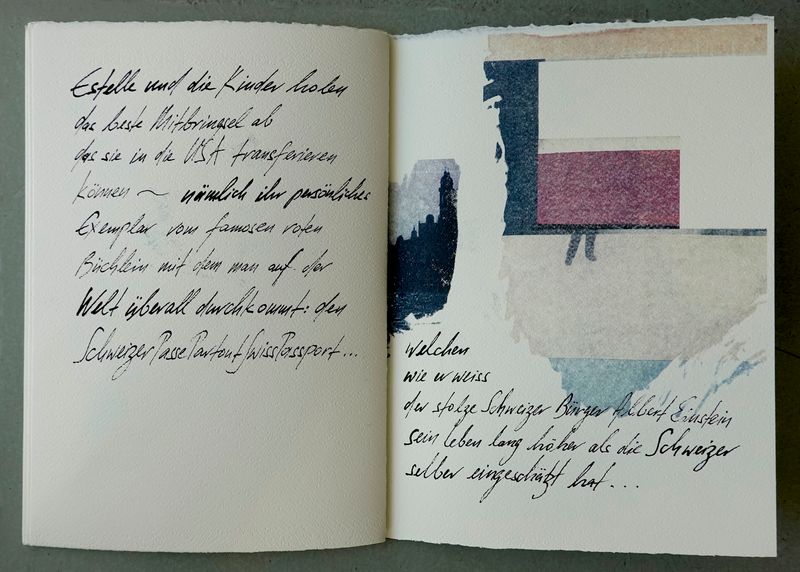 Estelle und die Kinder holen
das beste Mitbringsel ab
das sie in die USA transferieren
können ~ nämlich ihr persönliches
Exemplar vom famosen roten
Büchlein mit dem man auf der
Welt überall durchkommt: den
Schweizer PassePartout SwissPassport...
Welchen
wie er weiss
der stolze Schweizer Bürger Albert Einstein
sein Leben lang höher als die Schweizer
selber eingeschätzt hat...